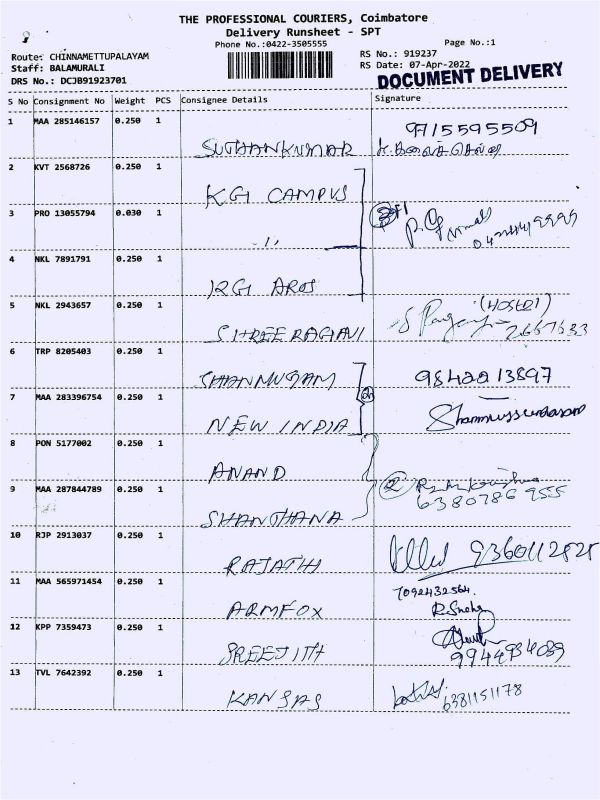 THE PROFESSIONAL COURIERS, Coimbatore
Delivery Runsheet - SPT
Phone No.:0422-3505555
Page No.:1
Route: CHINNAMETTUPALAYAM
RS No.: 919237
Staff: BALAMURALI
RS Date: 07-Apr-2022
DRS No.: DCJB91923701
DOCUMENT DELIVERY
S No Consignment No Weight PCS Consignee Details Signature
1 MAA 285146157 0.250 1
9715595509
SUTHANKUMAR
2 KVT 2568726 0.250 1
KG CAMPUS
3 PRO 13055794 0.030 1
-11-
4 NKL 7891791 0.250 1
5 NKL 2943657 0.250 1
(HOSTEL)
SHREE RAGAVI
6 TRP 8205403 0.250 1
SHANMUGAM 9842213897
7 MAA 283396754 0.250 1
2
NEW INDIA Shanmugsundaram
8 PON 5177002 0.250 1
ANAND
9 MAA 287844789 0.250 1
2
6380786955
SHANTHANA
10 RJP 2913037 0.250 1
RAJATH
11 MAA 565971454 0.250 1
7092432564.
ARMFOX R.Sneha
12 KPP 7359473 0.250 1
SREEJITH
9944934039
13 TVL 7642392 0.250 1
KANSAS 6381151178